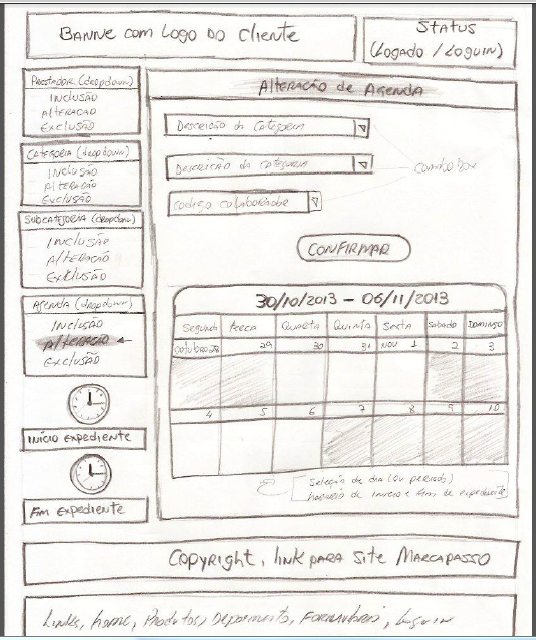 BANNE COM LOGO DO CLIENTE
STATUS
(LOGADO / LOGUIN)
PRESTADOR (dropdown)
INCLUSÃO
ALTERACAO
EXCLUSÃO
CATEGORIA (dropdown)
INCLUSÃO
ALTERAÇÃO
EXCLUSÃO
SUBCATEGORIA (dropdown)
INCLUSÃO
ALTERAÇÃO
EXCLUSÃO
AGENDA (dropdown)
INCLUSÃO
ALTERAÇÃO
EXCLUSÃO
INÍCIO EXPEDIENTE
FIM EXPEDIENTE
ALTERAÇÃO DE AGENDA
DESCRIÇÃO DA CATEGORIA
DESCRIÇÃO DA CATEGORIA
COMBO BOX
CODIGO COLABORADOR
CONFIRMAR
30/10/2013 – 06/11/2013
SEGUNDA TERCA QUARTA QUINTA SEXTA SABADO DOMINGO
OUTUBRO 28 29 30 31 NOV 1 2 3
4 5 6 7 8 9 10
SELEÇÃO DE DIA (OU PERIODO)
HORARIO DE INICIO E FIM DE EXPEDIENTE
COPYRIGHT, LINK PARA SITE MARCAPASSO
LINKS, HOME, PRODUTOS, DEPOIMENTO, FORMULARIO, LOGUIN